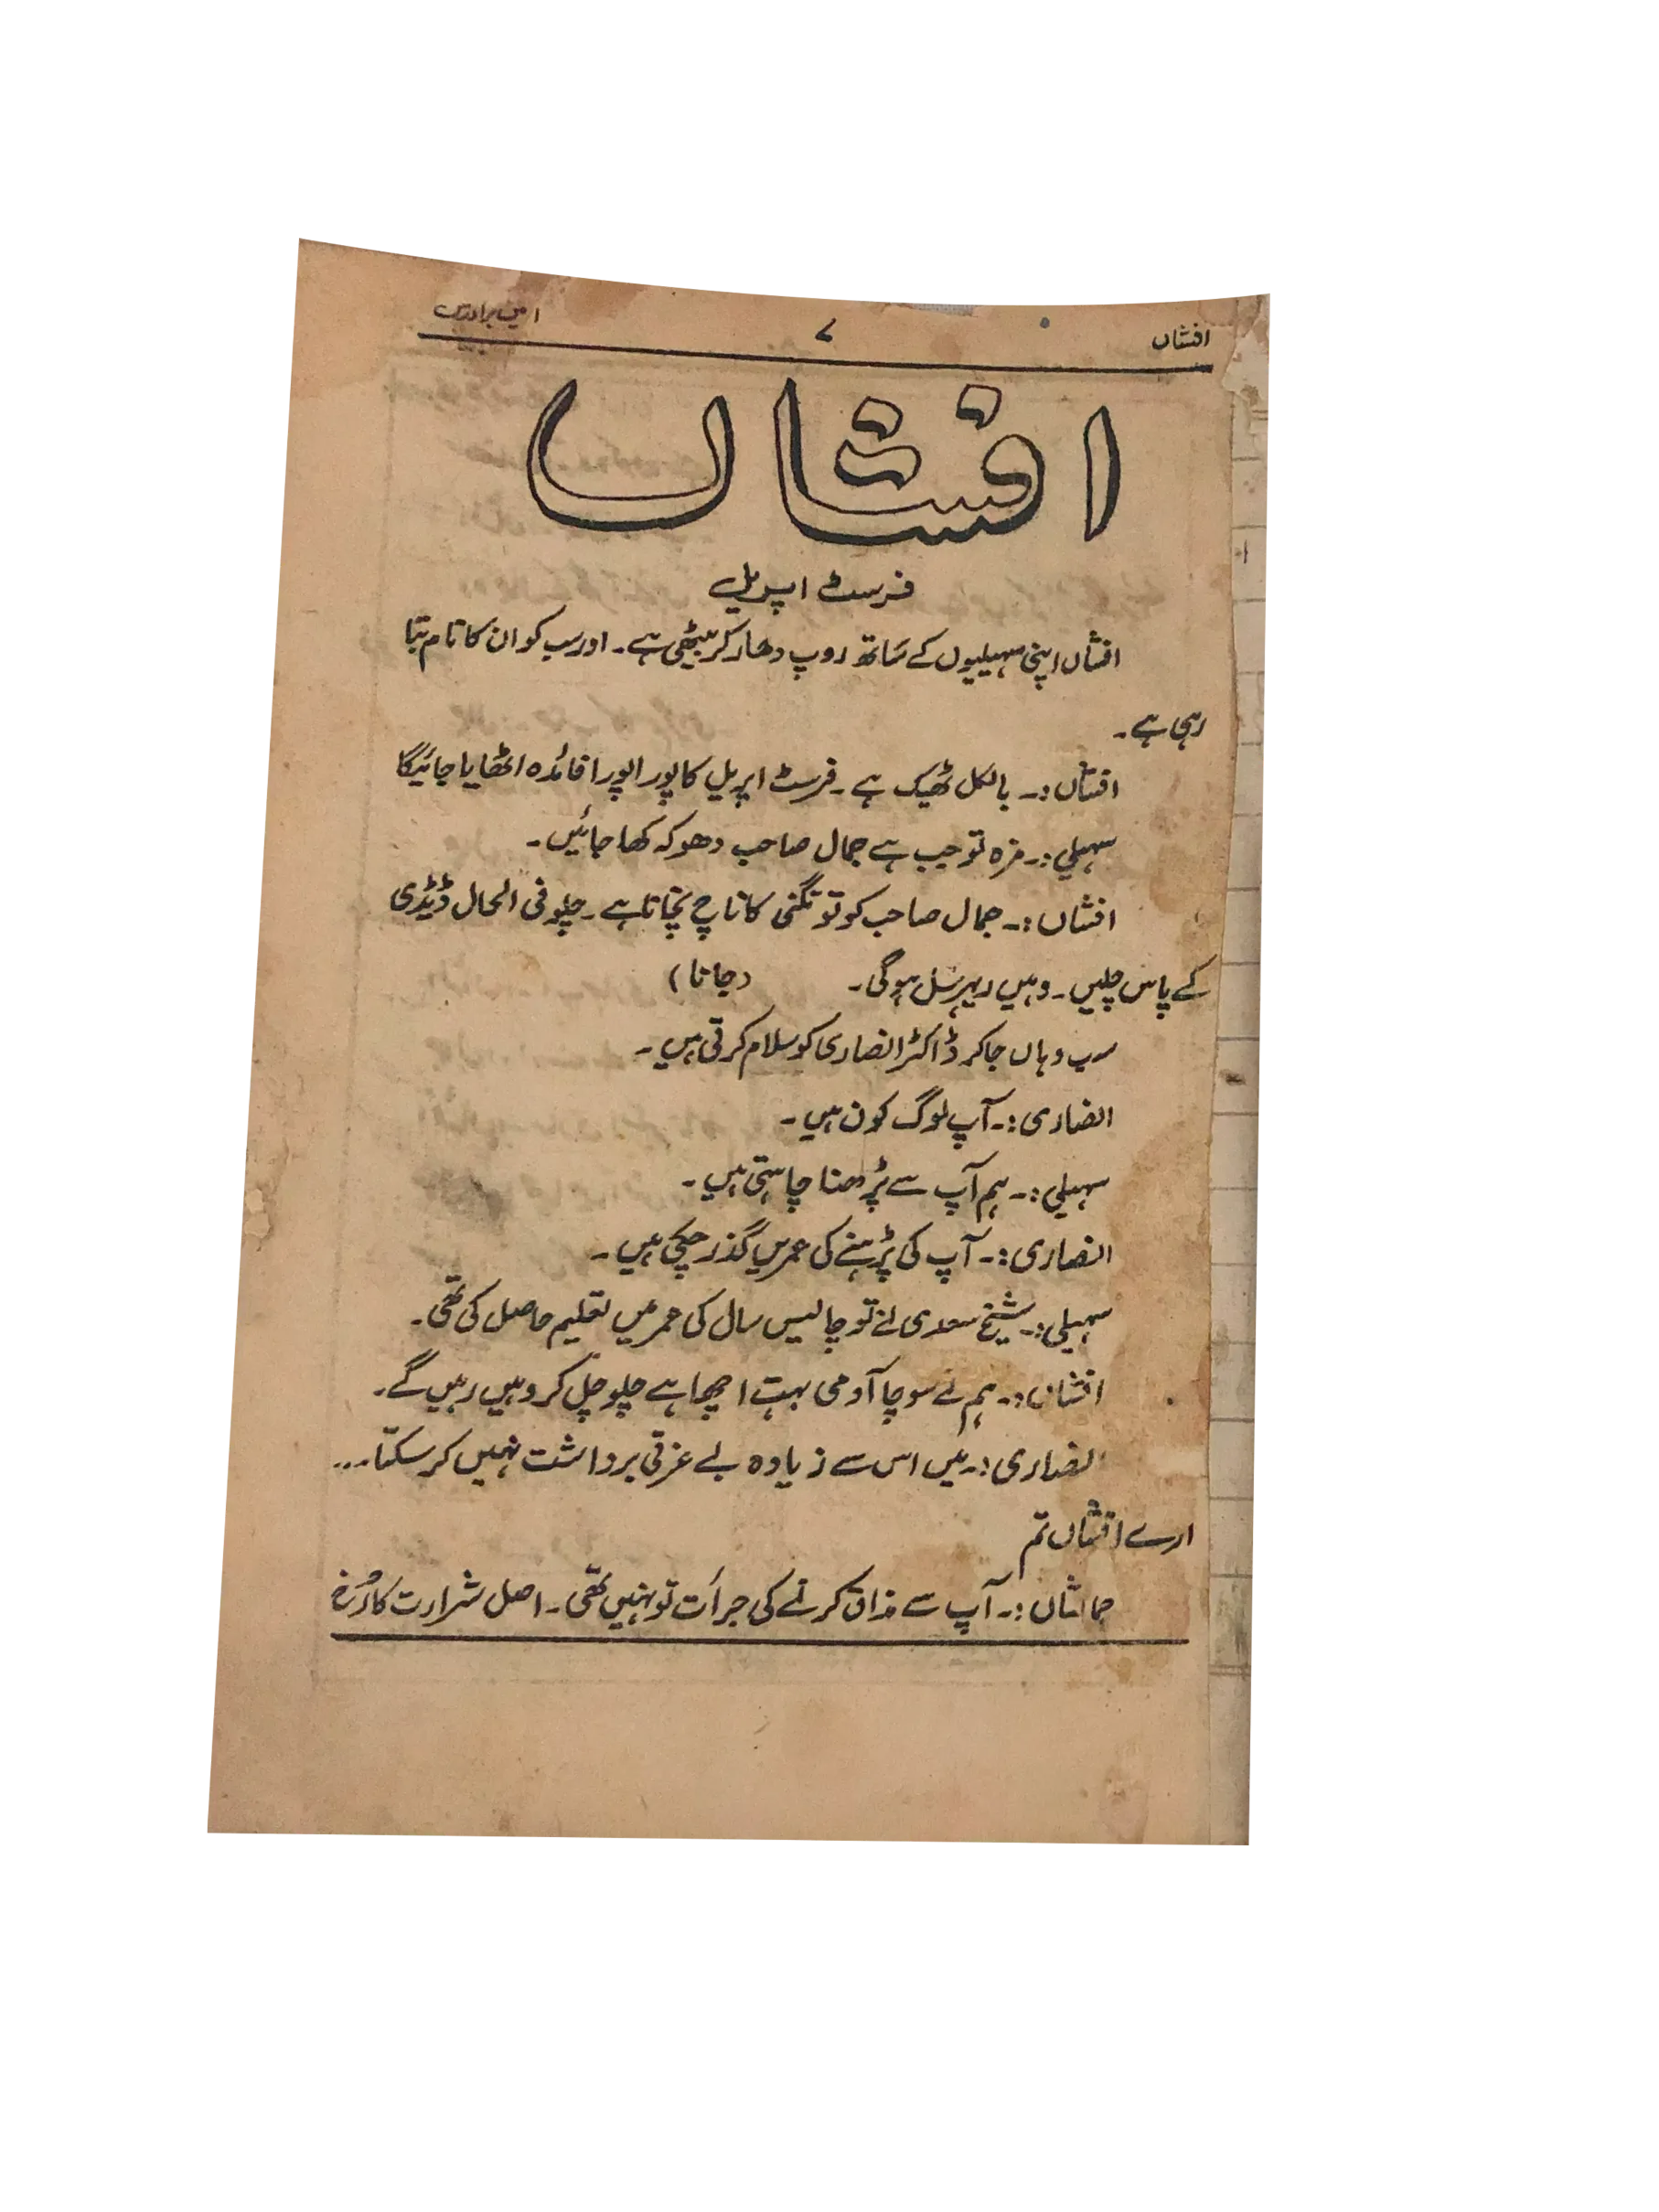 افشاں
۷
امین برادرس
افشاں
فرسٹ اپریل
افشاں اپنی سہیلیوں کے ساتھ روپ دھار کر بیٹھی ہے۔ اور سب کو ان کا نام بتا
رہی ہے۔
افشاں :۔ بالکل ٹھیک ہے ۔ فرسٹ اپریل کا پورا پورا فائدہ اٹھایا جائیگا
سہیلی :۔ مزہ تو جب ہے جمال صاحب دھوکہ کھا جائیں۔
افشاں :۔ جمال صاحب کو تو نگنی کا ناچ نچانا ہے ۔ چلو فی الحال ڈیڈی
کے پاس چلیں ۔ وہیں ریہرسل ہوگی۔ (جانا)
سب وہاں جا کر ڈاکٹر انصاری کو سلام کرتی ہیں ۔
انصاری :۔ آپ لوگ کون ہیں ۔
سہیلی :۔ ہم آپ سے پڑھنا چاہتی ہیں ۔
انصاری :۔ آپ کی پڑہنے کی عمریں گذر چکی ہیں ۔
سہیلی :۔ شیخ سعدی نے تو چالیس سال کی عمر میں تعلیم حاصل کی تھی۔
افشاں :۔ ہم نے سوچا آدمی بہت اچھا ہے چلو چل کر وہیں رہیں گے۔
انصاری :۔ میں اس سے زیادہ بے عزتی برداشت نہیں کر سکتا ۔۔۔
ارے افشاں تم
:۔ آپ سے مذاق کرنے کی جرأت تو نہیں تھی ۔ اصل شرارت کا رُخ